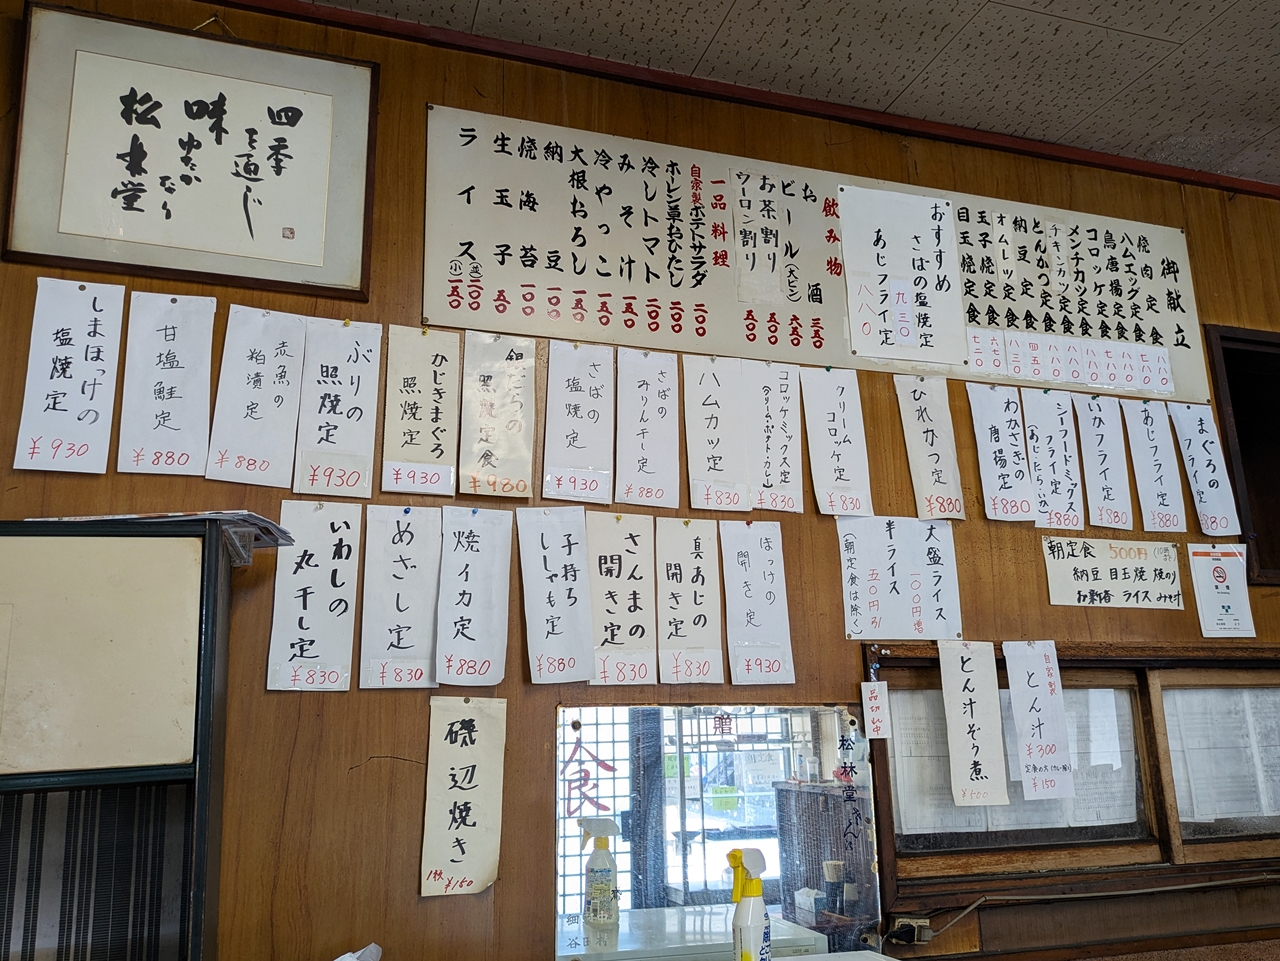 四季
を通じ
味
ゆたか
なり
松林堂
御献立
焼肉定食 八八〇
ハムエッグ定食 七八〇
鳥唐揚定食 八八〇
コロッケ定食 七八〇
メンチカツ定食 八八〇
チキンカツ定食 八八〇
とんかつ定食 八八〇
納豆定食 四五〇
オムレツ定食 八三〇
玉子焼定食 六七〇
目玉焼定食 七二〇
おすすめ
さばの塩焼定 九三〇
あじフライ定 八八〇
飲み物
お酒 三五〇
ビール(大ビン) 六五〇
お茶割り 五五〇
ウーロン割り 五〇〇
一品料理
自家製ポテトサラダ 二〇〇
ホレン草おひたし 二〇〇
冷しトマト 二〇〇
みそ汁 一五〇
冷やっこ 一五〇
大根おろし 一五〇
納豆 一〇〇
焼海苔 一〇〇
生玉子 五〇
ライス(並)二〇〇
(小)一五〇
しまほっけの
塩焼定
¥930
甘塩鮭定
¥880
赤魚の
粕漬定
¥880
ぶりの
照焼定
¥930
かじきまぐろ
照焼定
¥930
銀だらの
照焼定食
¥980
さばの
塩焼定
¥930
さばの
みりん干定
¥880
ハムカツ定
¥830
コロッケミックス定
(クリーム・ポテト・カレー)
¥830
クリーム
コロッケ定
¥830
ひれかつ定
¥880
わかさぎの
唐揚定
¥880
シーフードミックス
フライ定
(あじ・たら・いか)
¥880
いかフライ定
¥880
あじフライ定
¥880
まぐろの
フライ定
¥880
いわしの
丸干し定
¥830
めざし定
¥830
焼イカ定
¥880
子持ち
ししゃも定
¥880
さんまの
開き定
¥830
真あじの
開き定
¥830
ほっけの
開き定
¥930
大盛ライス
一〇〇円増
半ライス
五〇円引
(朝定食は除く)
朝定食 500円
納豆 目玉焼 焼のり
お新香 ライス みそ汁
磯辺焼き
1枚 ¥150
品切れ中
とん汁ぞう煮
¥500
自家製
とん汁
¥300
¥150
贈
食
松林堂さん江